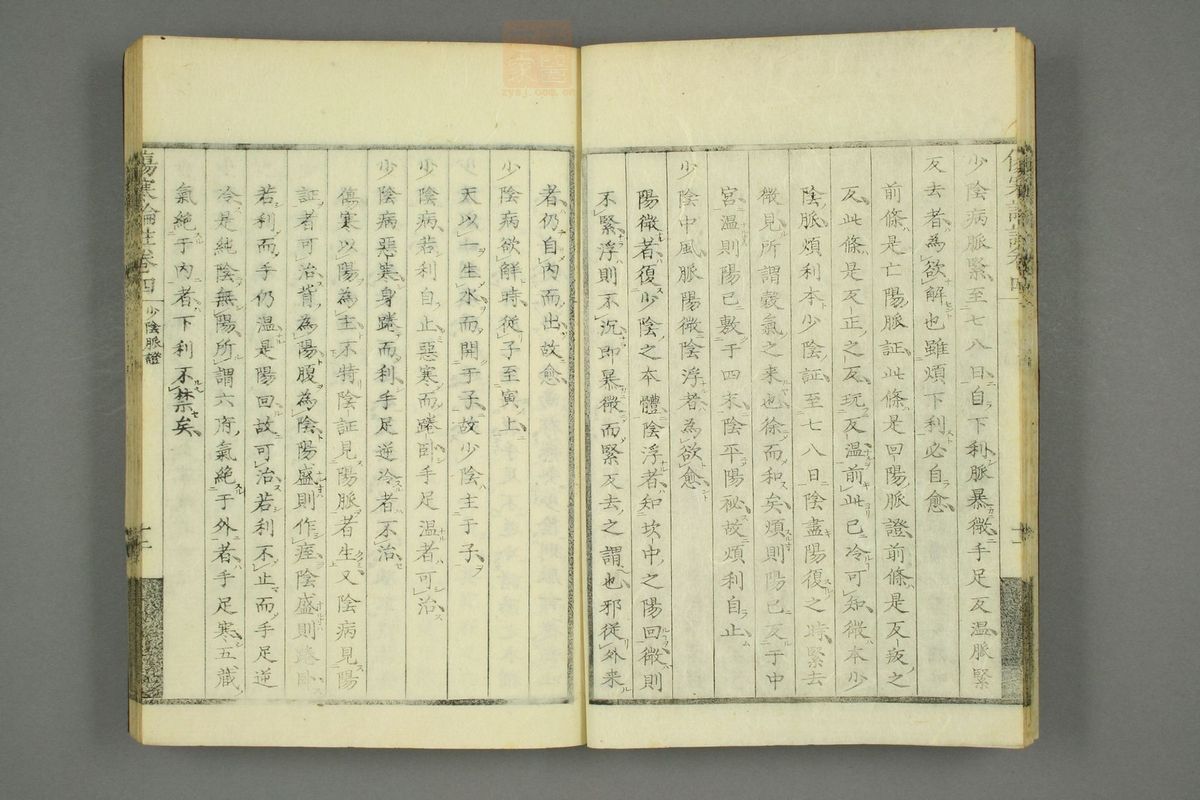 少陰病脈緊至七八日自下利脈暴微手足反温脈緊
反去者為欲解也雖煩下利必自愈
前條是亡陽脈証此條是回陽脈證前條是反叛之
反此條是反正之反玩反温前此已冷可知微本少
陰脈煩利本少陰証至七八日陰盡陽復之時緊去
微見所謂穀氣之来也徐而和矣煩則陽已反于中
宮温則陽已敷于四末陰平陽秘故煩利自止
少陰中風脈陽微陰浮者為欲愈
陽微者復少陰之本體陰浮者知坎中之陽回微則
不緊浮則不沉即暴微而緊反去之謂也邪従外来
者仍自内而出故愈
少陰病欲解時從子至寅上
天以一生水而開于子故少陰主于子
少陰病若利自止惡寒而踡卧手足温者可治
少陰病惡寒身踡而利手足逆冷者不治
傷寒以陽為主不特陰証見陽脈者生又陰病見陽
証者可治背為陽腹為陰陽盛則作痓陰盛則踡卧
若利而手仍温是陽回故可治若利不止而手足逆
冷是純陰無陽所謂六府氣絶于外者手足寒五藏
氣絶于内者下利不禁矣
傷寒論註卷四
少陰脈證
十二
zysj.com.cn